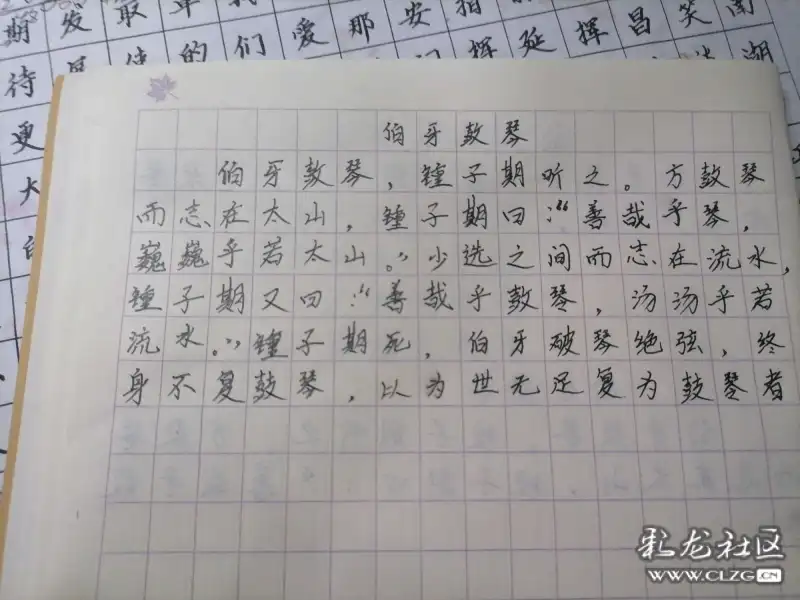 期发最
待是使的们爱那安
更
大
挥延挥昌笑
湖
伯牙鼓琴
伯牙鼓琴，锺子期听之。方鼓琴
而志在太山，锺子期曰：“善哉乎琴，
巍巍乎若太山。”少选之间而志在流水，
锺子期又曰：“善哉乎鼓琴，汤汤乎若
流水。”锺子期死，伯牙破琴绝弦，终
身不复鼓琴，以为世无足复为鼓琴者
彩龙社区
WWW.CLZG.CN